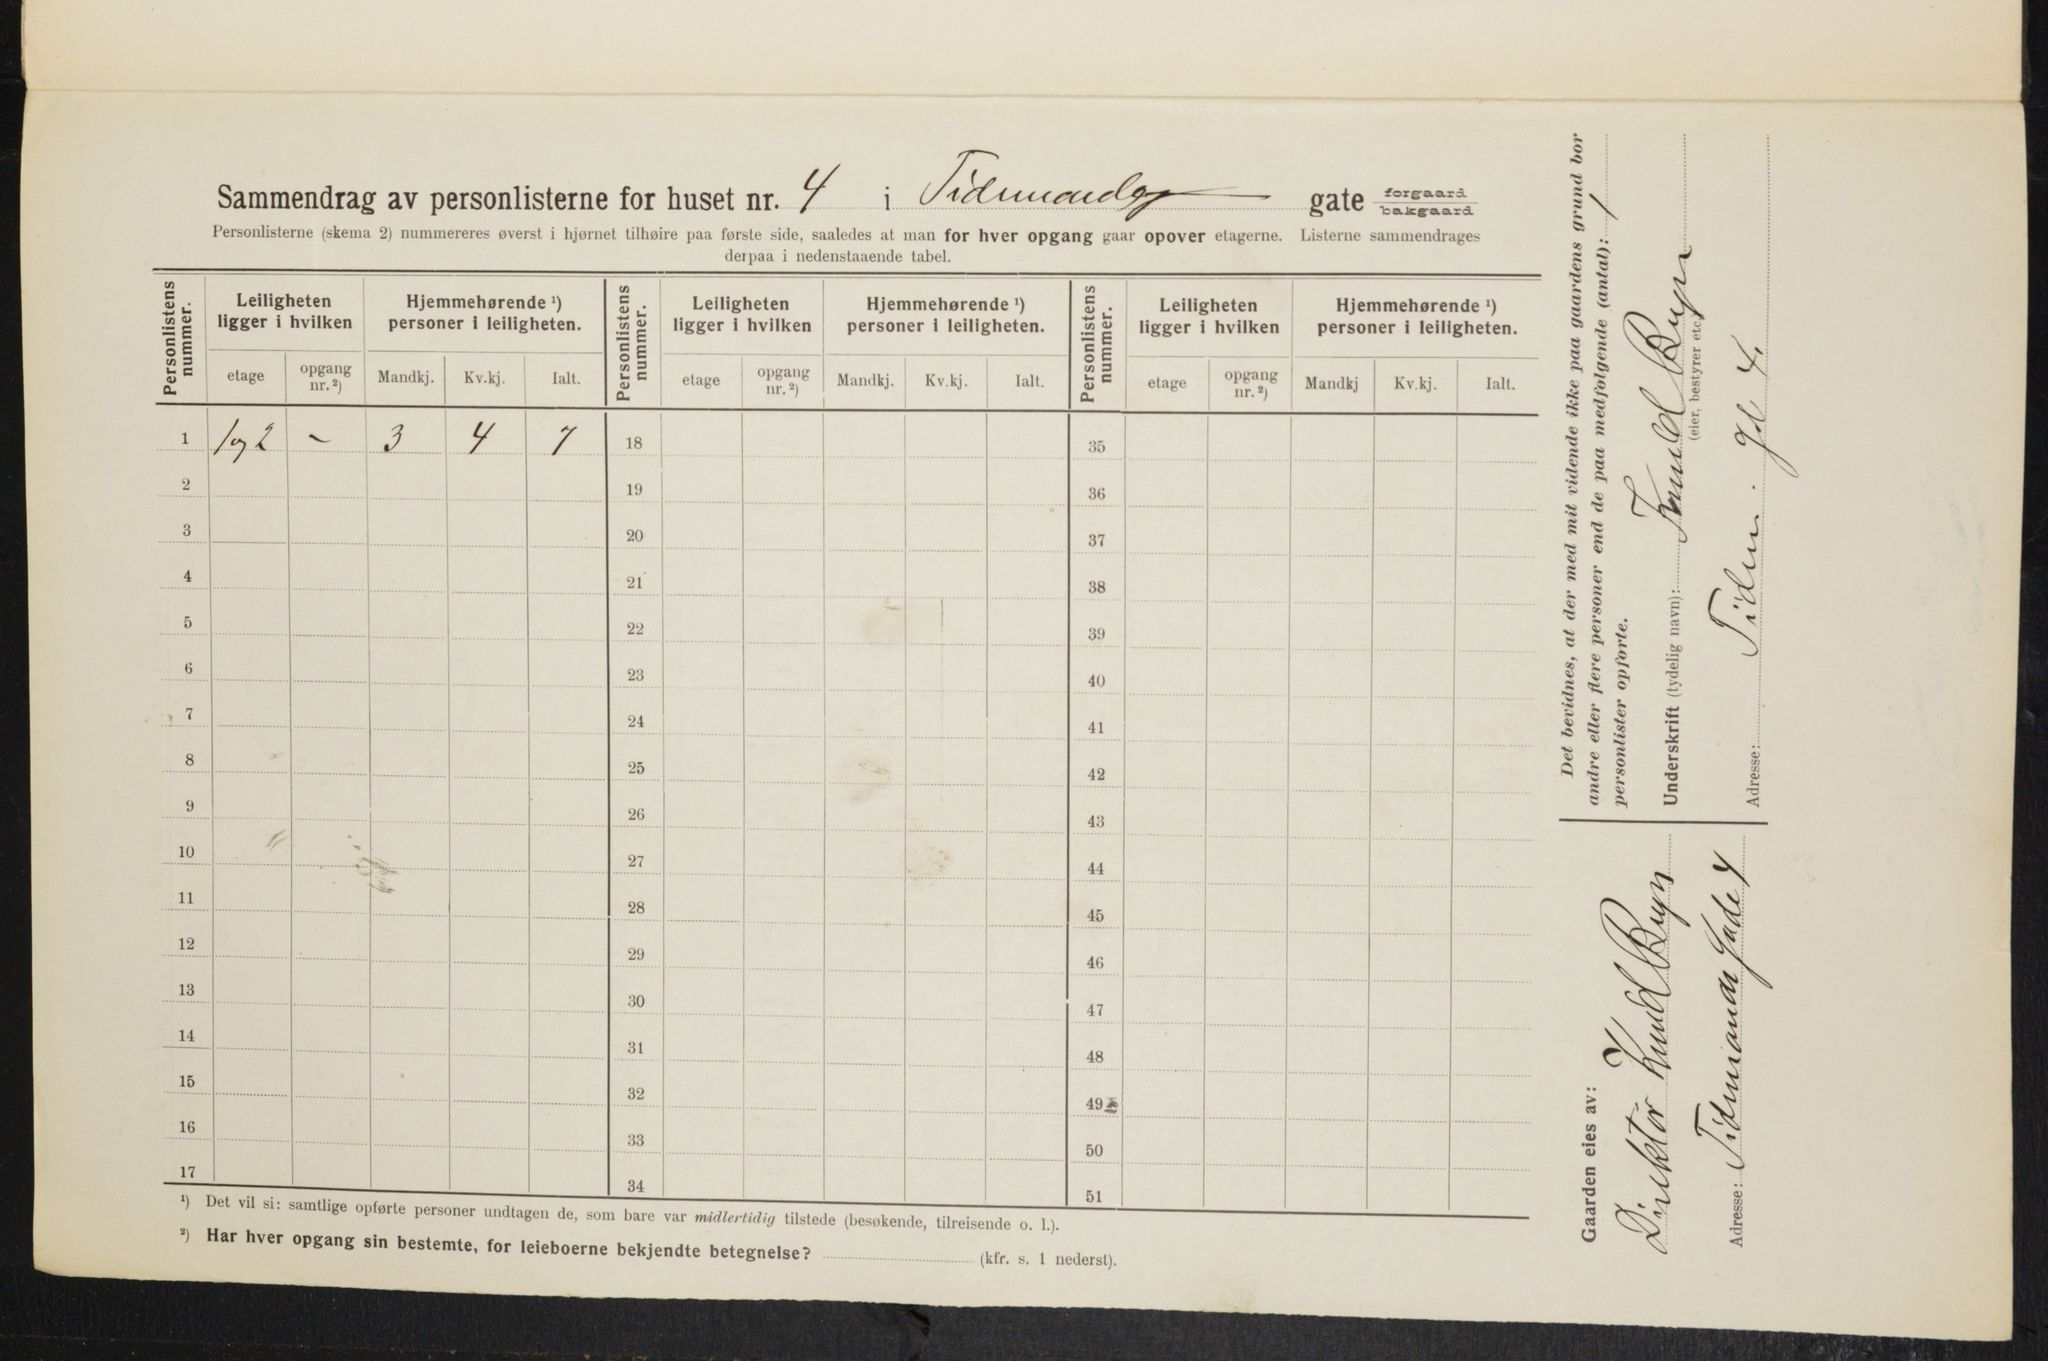 Sammendrag av personlisterne for huset nr. 4 i Tidemandsg gate forgaard bakgaard
Personlisterne (skema 2) nummereres øverst i hjørnet tilhøire paa første side, saaledes at man for hver opgang gaar opover etagerne. Listerne sammendrages
derpaa i nedenstaaende tabel.
Personlistens nummer. Leiligheten ligger i hvilken Hjemmehørende ¹) personer i leiligheten. Personlistens nummer. Leiligheten ligger i hvilken Hjemmehørende ¹) personer i leiligheten. Personlistens nummer. Leiligheten ligger i hvilken Hjemmehørende ¹) personer i leiligheten.
etage opgang nr. ²) Mandkj. Kv.kj. Ialt. etage opgang nr. ²) Mandkj. Kv.kj. Ialt. etage opgang nr. ²) Mandkj Kv.kj. Ialt.
1 1 og 2 ~ 3 4 7 18 35
2 19 36
3 20 37
4 21 38
5 22 39
6 23 40
7 24 41
8 25 42
9 26 43
10 27 44
11 28 45
12 29 46
13 30 47
14 31 48
15 32 49
16 33 50
17 34 51
¹) Det vil si: samtlige opførte personer undtagen de, som bare var midlertidig tilstede (besøkende, tilreisende o. l.).
²) Har hver opgang sin bestemte, for leieboerne bekjendte betegnelse? (kfr. s. 1 nederst).
Det bevidnes, at der med mit vidende ikke paa gaardens grund bor
andre eller flere personer end de paa medfølgende (antal): 1
personlister opførte.
Underskrift (tydelig navn): Knud Bryn
(eier, bestyrer etc.)
Adresse: Tidm. gd 4.
Gaarden eies av:
Direktør Knud Bryn
Adresse: Tidemands Gade 4